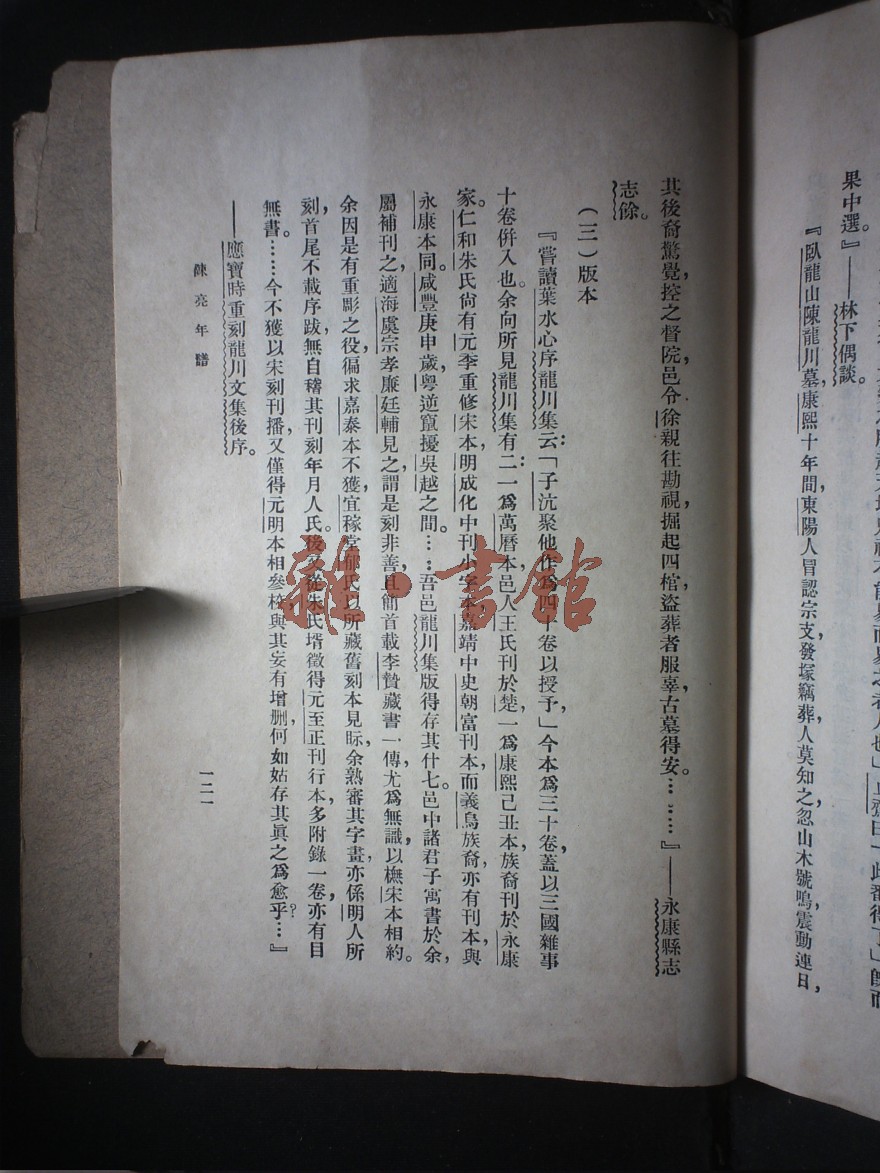 果中選。』——林下偶談。
『臥龍山陳龍川墓，康熙十年間，東陽人冒認宗支發塚竊葬，人莫知之，忽山木號鳴，震動連日，
其後裔驚覺，控之督院，邑令徐親往勘視，掘起四棺，盜葬者服辜，古墓得安。……』——永康縣志
志餘。
（三）版本
『嘗讀葉水心序龍川集云：「子沆聚他作為四十卷以授予」，今本為三十卷，蓋以三國雜事
十卷併入也。余向所見龍川集有二：一為萬曆本，邑人王氏刊於楚，一為康熙己丑本，族裔刊於永康
家。仁和朱氏尙有元季重修宋本，明成化中刊小字本，嘉靖中史朝富刊本，而義烏族裔亦有刊本，與
永康本同。咸豐庚申歲，粵逆竄擾吳越之間。……吾邑龍川集版得存其什七。邑中諸君子寓書於余，
屬補刊之，適海虞宗孝廉廷輔見之，謂是刻非善，且簡首載李贄藏書一傳，尤為無識，以橅宋本相約。
余因是有重彫之役，徧求嘉泰本不獲，宜稼堂郁氏以所藏舊刻本見眎，余熟審其字畫，亦係明人所
刻，首尾不載序跋，無自稽其刊刻年月人氏。後又從朱氏壻徵得元至正刊行本，多附錄一卷，亦有目
無書。……今不獲以宋刻刊播，又僅得元明本相參校，與其妄有增刪，何如姑存其眞之為愈乎？…』
——應寶時重刻龍川文集後序。
陳亮年譜
一二一
雜·書館